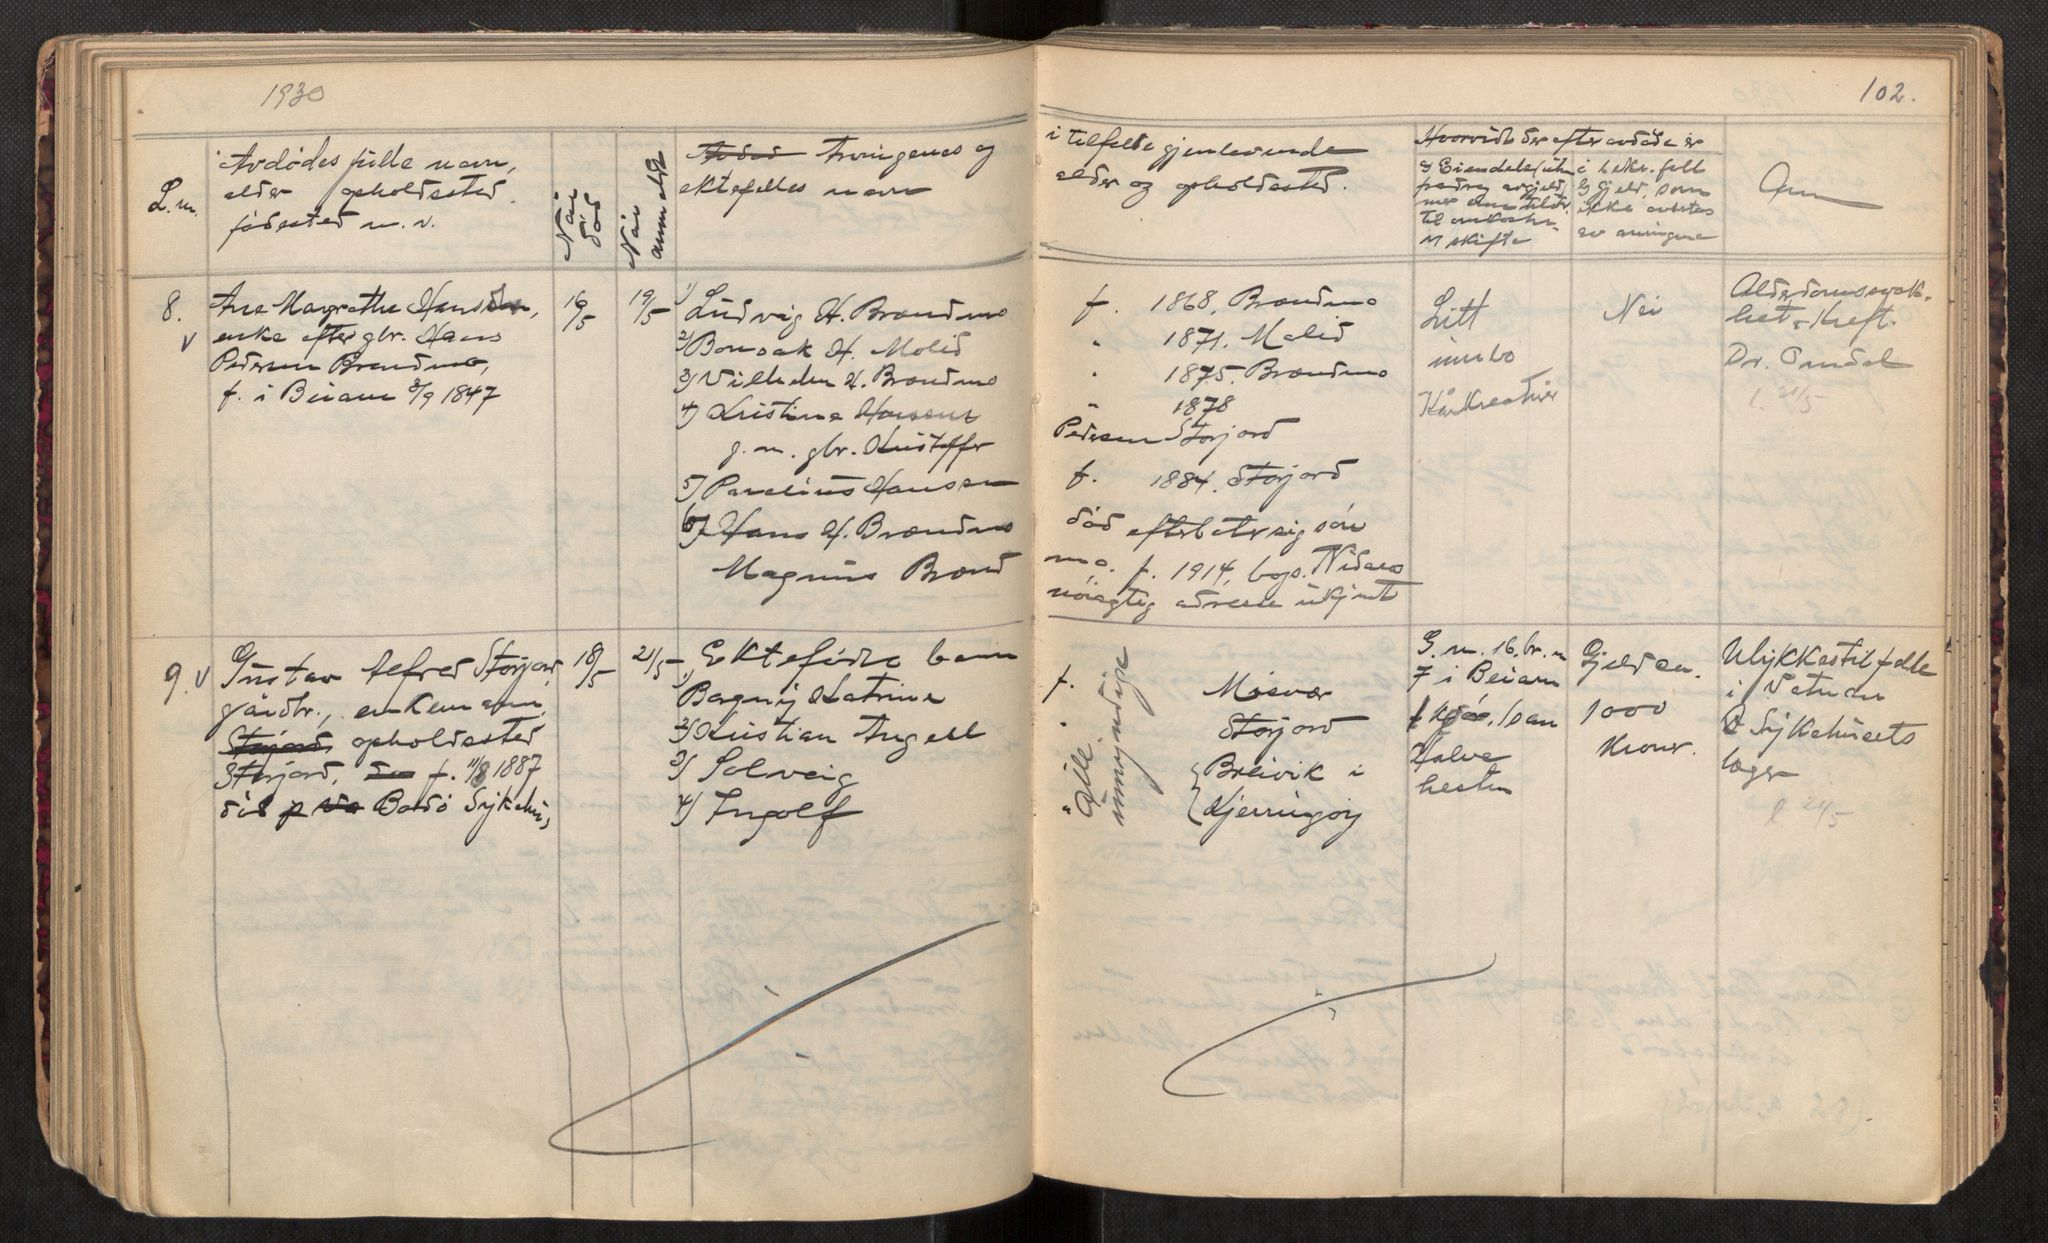 1930
102.
L.nr.
Avdødes fulle navn,
alder opholdssted
fødested m. v.
Når
død
Når
anmeldt
Arvingenes og
ektefelles navn
i tilfelde gjenlevende
alder og opholdssted.
Hvorvidt der efter avdøde er
a) Eiendele (uten
fradrag av gjeld)
mer enn tilstr.
til omkostn.
v/ skifte
i bekr. fall
b) gjeld, som
ikke avertes
av arvingene
Anm
8.
v
Ane Margrethe Hansdtr,
enke efter gbr. Hans
Pedersen Brændmo,
f. i Beiarn 3/9 1847
16/5
19/5
1) Ludvig H. Brændmo
2) Bonsak H. Molid
3) Vilhelm H. Brændmo
4) Kristine Hansen
g. m. gbr. Kristoffer
5) Parelius Hansen
6) Hans H. Brændmo
Magnus Brænd
f. 1868, Brændmo
" 1871. Molid
" 1875. Brændmo
" 1878
Pedersen Storjord
f. 1884. Storjord
død efterlater sig søn
mo. f. 1914, bops. Nidaros
nøiagtig adresse ukjent
Litt
innbo
Kårkreaturer
Nei
Alderdomssvak-
het, Kreft.
Dr.
l. 21/5
9. v
Gustav Alfred Storjord,
gårdbr., enkemann,
Storjord, opholdssted
Storjord, f. 11/8 1887
død Bodø Sykehus,
18/5
21/5
Ektefødte barn
1) Bergny Katrine
2) Kristian Angell
3) Solveig
4) Ingolf
f.
"
"
"
Alle
umyndige
Misvær
Storjord
Breivik i
Kjerringøy
G. nr. 16. br. nr
7 i Beiarn
Halve
hesten
Gjeld ca.
1000
kroner.
Ulykkestilfelle
i Vetnan
Sykehusets
læge
l 24/5